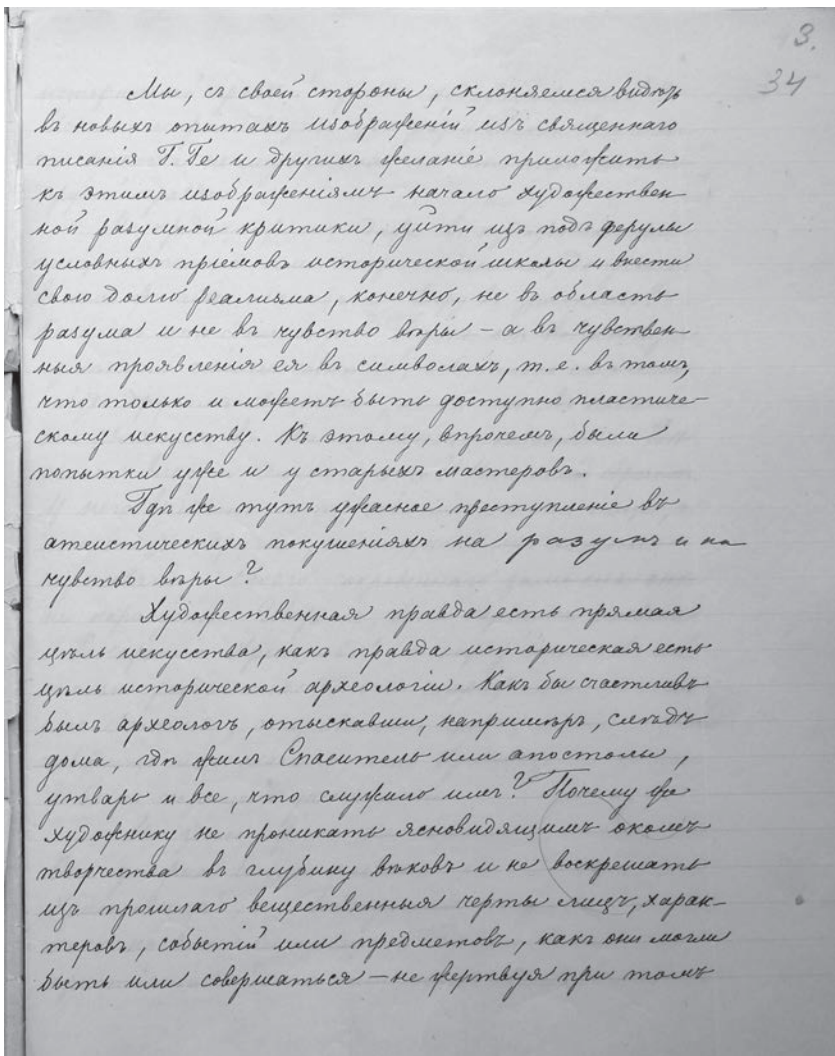 3.
34
Мы, съ своей стороны, склоняемся видѣть
въ новыхъ опытахъ изображеній изъ священнаго
писанія Г. Ге и другихъ желаніе приложить
къ этимъ изображеніямъ начало художествен-
ной разумной критики, уйти изъ подъ ферулы
условныхъ пріемовъ исторической школы и внести
свою долю реализма, конечно, не въ область
разума и не въ чувство вѣры – а въ чувствен-
ныя проявленія ея въ символахъ, т. е. въ томъ,
что только и можетъ быть доступно пластиче-
скому искусству. Къ этому, впрочемъ, были
попытки уже и у старыхъ мастеровъ.
Гдѣ же тутъ ужасное преступленіе въ
атеистическихъ покушеніяхъ на разумъ и на
чувство вѣры?
Художественная правда есть прямая
цѣль искусства, какъ правда историческая есть
цѣль исторической археологіи. Какъ бы счастливъ
былъ археологъ, отыскавши, напримѣръ, слѣдъ
дома, гдѣ жилъ Спаситель или апостолы,
утварь и все, что служило имъ? Почему же
художнику не проникать ясновидящимъ окомъ
творчества въ глубину вѣковъ и не воскрешать
изъ прошлаго вещественныя черты лицъ, харак-
теровъ, событій или предметовъ, какъ они могли
быть или совершаться – не жертвуя при томъ